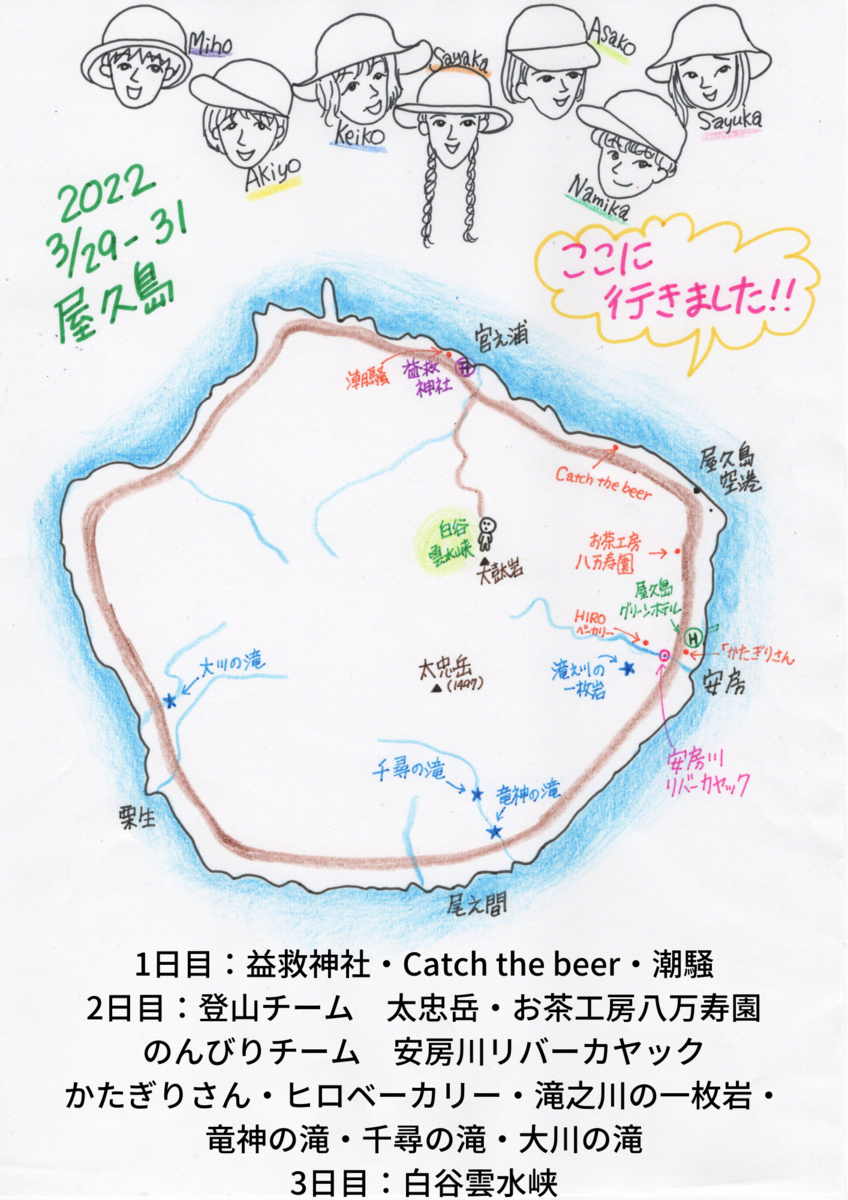 Miho
Akiyo
Keiko
Sayaka
Asako
Namika
Sayuka
2022
3/29-31
屋久島
ここに
行きました!!
宮之浦
潮騒
益救
神社
Catch the beer
屋久島
空港
白谷
雲水峡
太鼓岩
お茶工房
八万寿園
屋久島
グリーンホテル
H
HIRO
ベーカリー
かたぎりさん
安房
滝之川の
一枚岩
太忠岳
(1497)
大川の滝
千尋の滝
竜神の滝
安房川
リバーカヤック
栗生
尾之間
1日目：益救神社・Catch the beer・潮騒
2日目：登山チーム　太忠岳・お茶工房八万寿園
のんびりチーム　安房川リバーカヤック
かたぎりさん・ヒロベーカリー・滝之川の一枚岩・
竜神の滝・千尋の滝・大川の滝
3日目：白谷雲水峡